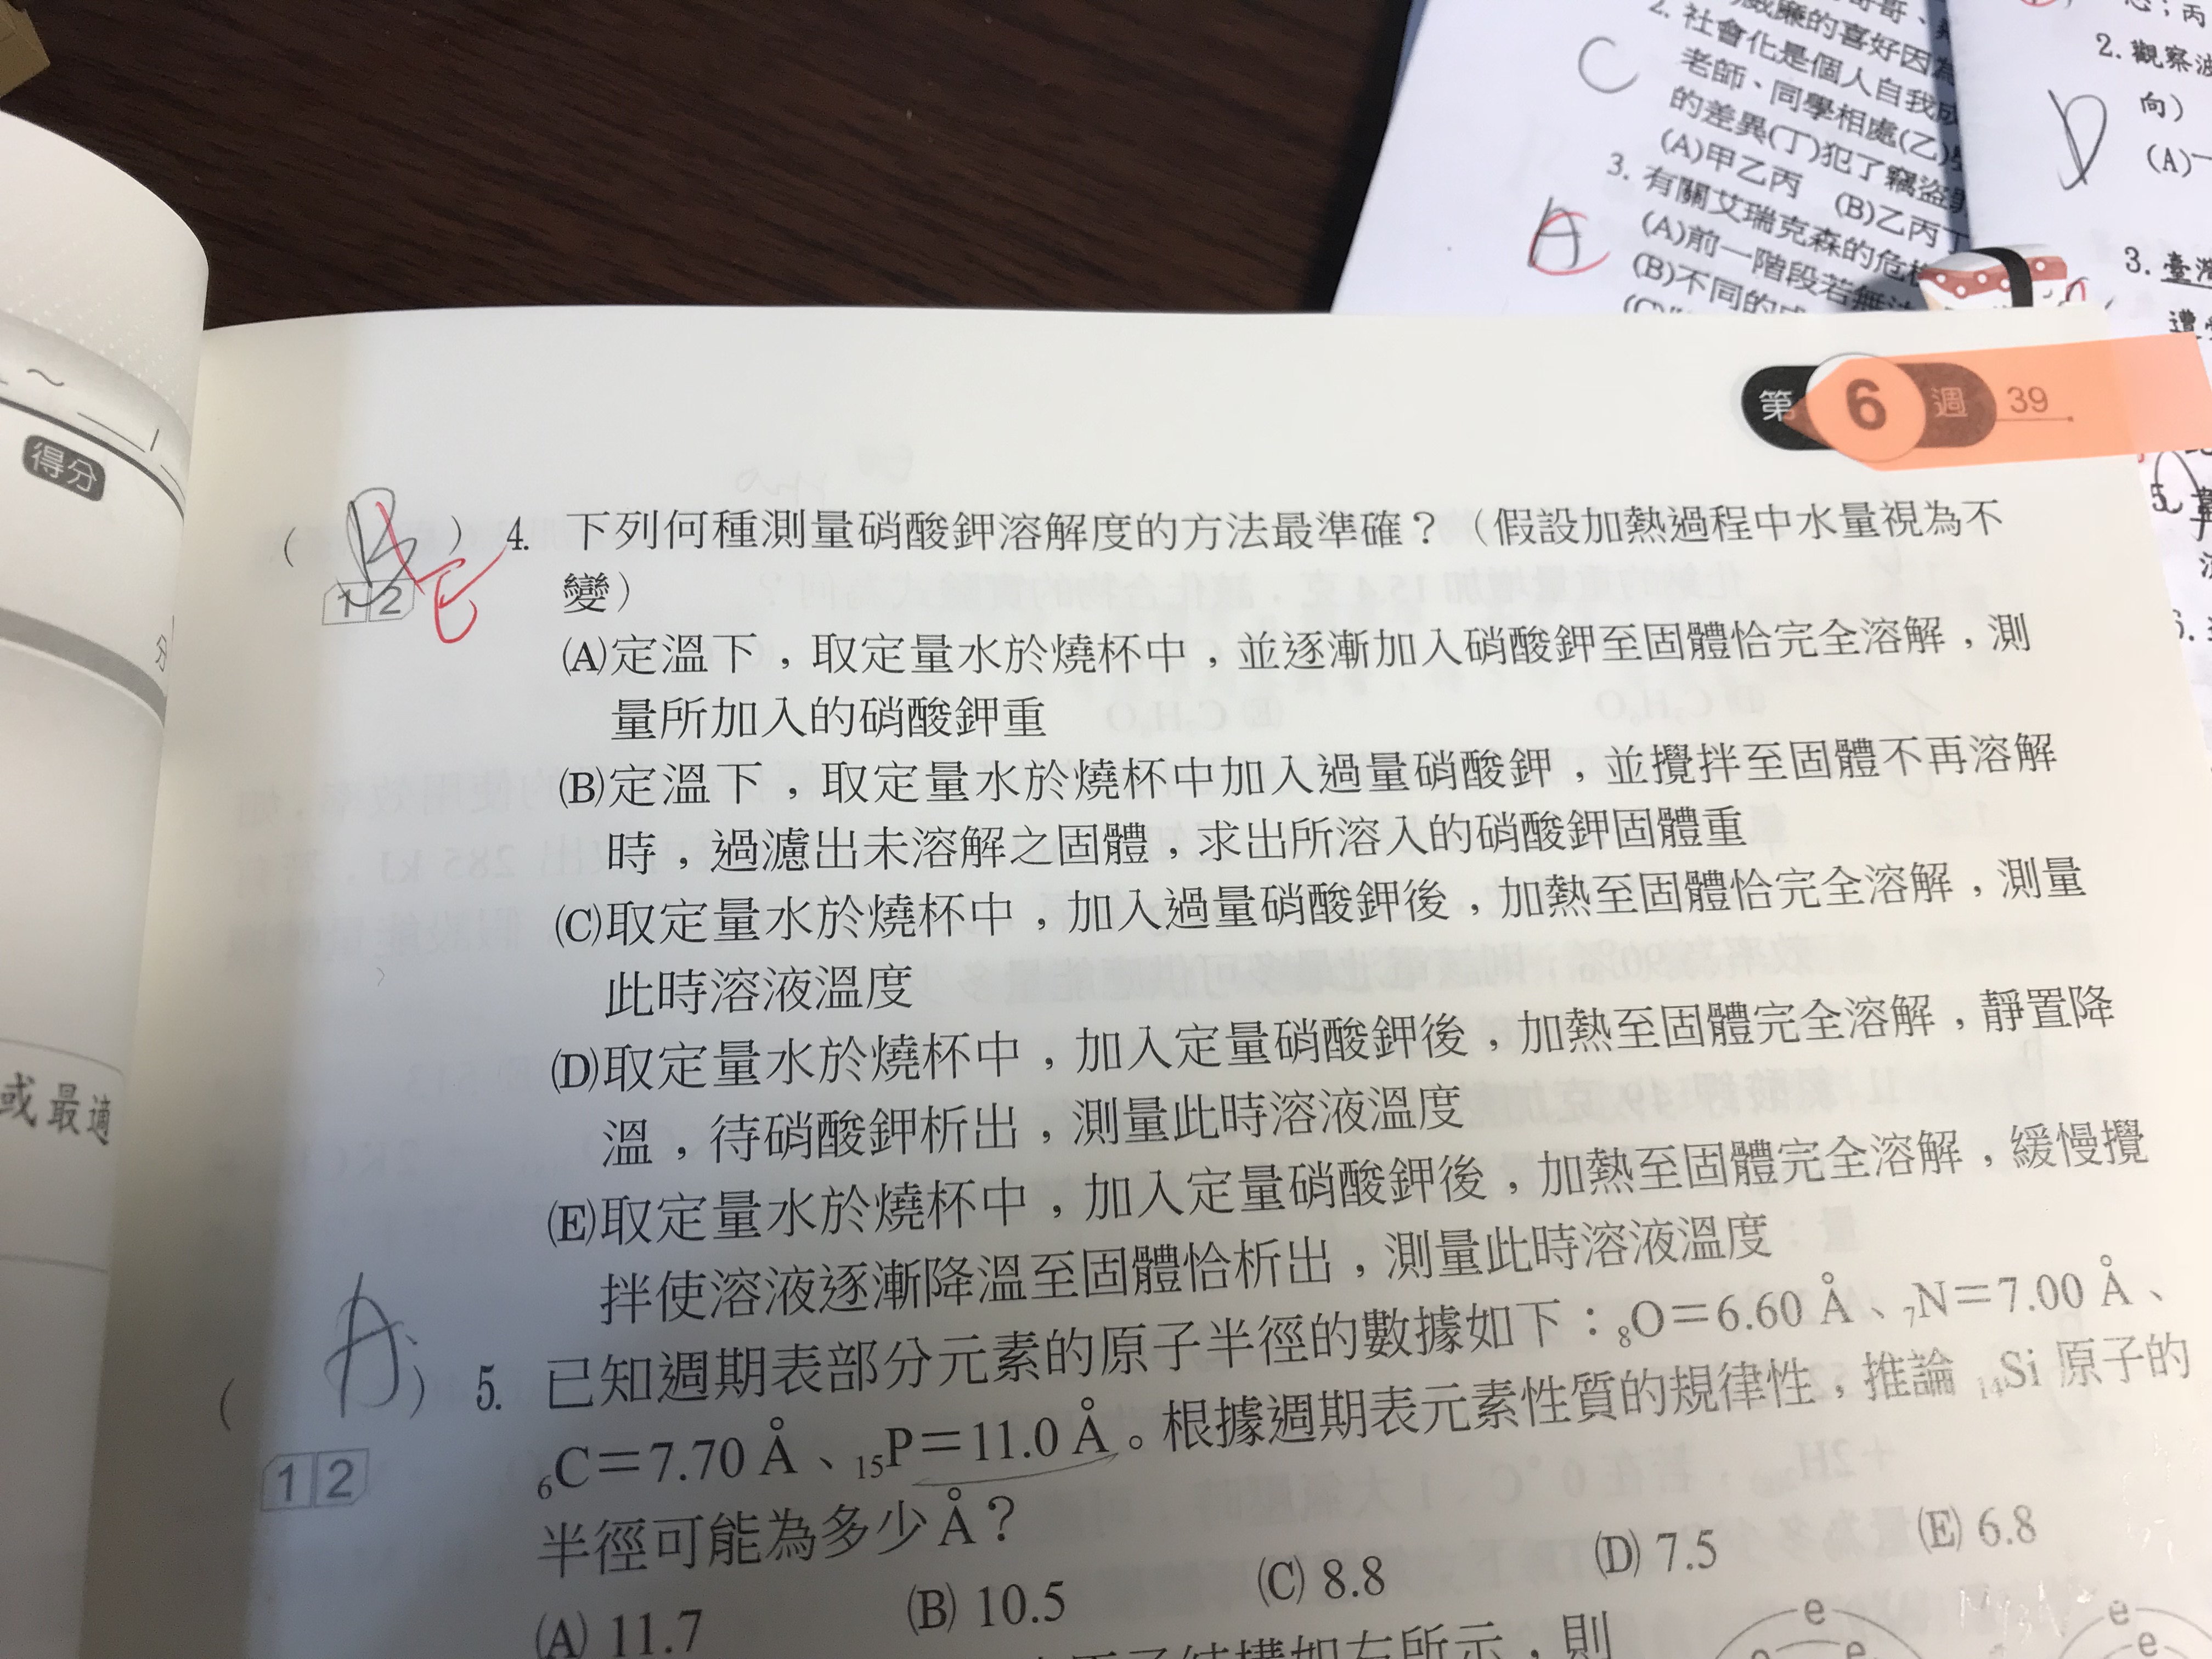 2. 社會化是個人自我成
老師、同學相處(乙)
的差異(丁)犯了竊盜罪
(A)甲乙丙 (B)乙丙丁
3. 有關艾瑞克森的危機
(A)前一階段若無法
(B)不同的
C
A
2. 觀察波
向)
(A)一
D
3. 臺灣
得分
分
或最適
第6週 39
( B ) 4. 下列何種測量硝酸鉀溶解度的方法最準確?(假設加熱過程中水量視為不
E
12
變)
(A)定溫下,取定量水於燒杯中,並逐漸加入硝酸鉀至固體恰完全溶解,測
量所加入的硝酸鉀重
(B)定溫下,取定量水於燒杯中加入過量硝酸鉀,並攪拌至固體不再溶解
時,過濾出未溶解之固體,求出所溶入的硝酸鉀固體重
(C)取定量水於燒杯中,加入過量硝酸鉀後,加熱至固體恰完全溶解,測量
此時溶液溫度
(D)取定量水於燒杯中,加入定量硝酸鉀後,加熱至固體完全溶解,靜置降
溫,待硝酸鉀析出,測量此時溶液溫度
(E)取定量水於燒杯中,加入定量硝酸鉀後,加熱至固體完全溶解,緩慢攪
拌使溶液逐漸降溫至固體恰析出,測量此時溶液溫度
( A ) 5. 已知週期表部分元素的原子半徑的數據如下:₈O=6.60 Å、₇N=7.00 Å、
₆C=7.70 Å、₁₅P=11.0 Å。根據週期表元素性質的規律性,推論 ₁₄Si 原子的
12
半徑可能為多少Å?
(A) 11.7 (B) 10.5 (C) 8.8 (D) 7.5 (E) 6.8
子結構如右所示,則
e e
e e